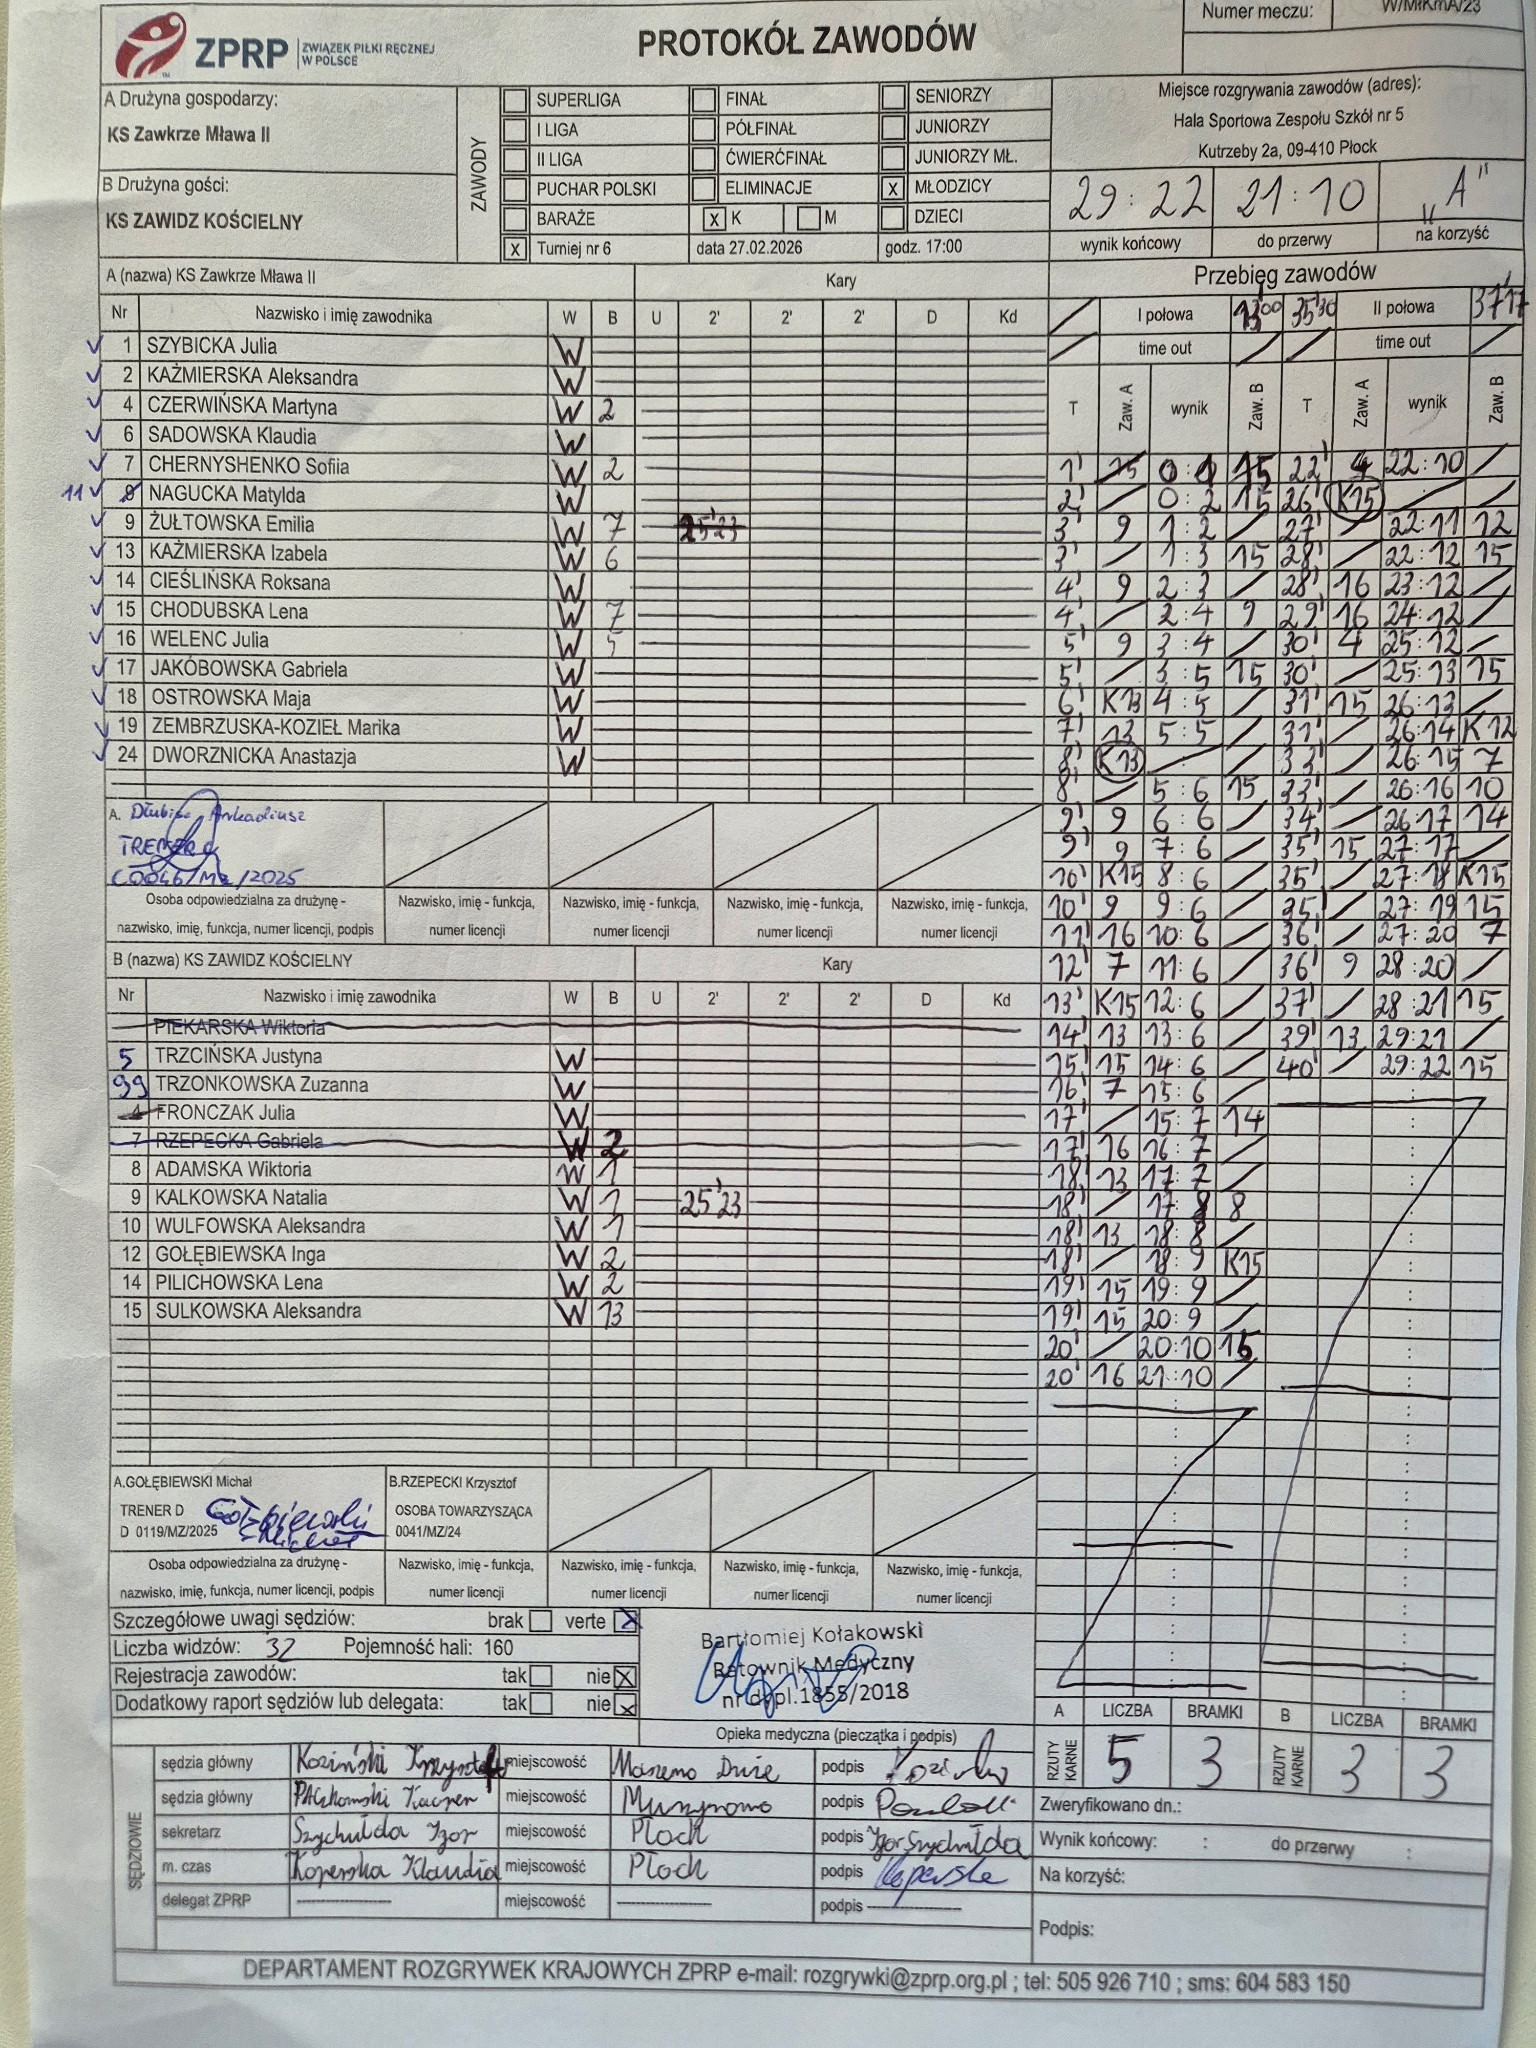 Numer meczu: W/MłKmA/23
ZPRP ZWIĄZEK PIŁKI RĘCZNEJ W POLSCE
PROTOKÓŁ ZAWODÓW
A Drużyna gospodarzy:
KS Zawkrze Mława II
B Drużyna gości:
KS ZAWIDZ KOŚCIELNY
ZAWODY
SUPERLIGA FINAŁ SENIORZY
I LIGA PÓŁFINAŁ JUNIORZY
II LIGA ĆWIERĆFINAŁ JUNIORZY MŁ.
PUCHAR POLSKI ELIMINACJE x MŁODZICY
BARAŻE x K M DZIECI
x Turniej nr 6 data 27.02.2026 godz. 17:00
Miejsce rozgrywania zawodów (adres):
Hala Sportowa Zespołu Szkół nr 5
Kutrzeby 2a, 09-410 Płock
29:22 21:10 „A"
wynik końcowy do przerwy na korzyść
A (nazwa) KS Zawkrze Mława II Kary
Nr Nazwisko i imię zawodnika W B U 2' 2' 2' D Kd
1 SZYBICKA Julia W
2 KAŹMIERSKA Aleksandra W
4 CZERWIŃSKA Martyna W 2
6 SADOWSKA Klaudia W
7 CHERNYSHENKO Sofiia W 2
11 8 NAGUCKA Matylda W
9 ŻUŁTOWSKA Emilia W 7 25'23
13 KAŹMIERSKA Izabela W 6
14 CIEŚLIŃSKA Roksana W
15 CHODUBSKA Lena W 7
16 WELENC Julia W 5
17 JAKÓBOWSKA Gabriela W
18 OSTROWSKA Maja W
19 ZEMBRZUSKA-KOZIEŁ Marika W
24 DWORZNICKA Anastazja W
A. Dłubisz Arkadiusz
TRENER C
C0046/MZ/2025
Osoba odpowiedzialna za drużynę - nazwisko, imię, funkcja, numer licencji, podpis
Nazwisko, imię - funkcja, numer licencji
Nazwisko, imię - funkcja, numer licencji
Nazwisko, imię - funkcja, numer licencji
Nazwisko, imię - funkcja, numer licencji
B (nazwa) KS ZAWIDZ KOŚCIELNY Kary
Nr Nazwisko i imię zawodnika W B U 2' 2' 2' D Kd
PIEKARSKA Wiktoria
5 TRZCIŃSKA Justyna W
99 TRZONKOWSKA Zuzanna W
4 FRONCZAK Julia W
7 RZEPECKA Gabriela W 2
8 ADAMSKA Wiktoria W 1
9 KALKOWSKA Natalia W 1 25'23
10 WULFOWSKA Aleksandra W 1
12 GOŁĘBIEWSKA Inga W 2
14 PILICHOWSKA Lena W 2
15 SULKOWSKA Aleksandra W 13
A.GOŁĘBIEWSKI Michał
TRENER D
D 0119/MZ/2025
Gołębiewski Michał
B.RZEPECKI Krzysztof
OSOBA TOWARZYSZĄCA
0041/MZ/24
Osoba odpowiedzialna za drużynę - nazwisko, imię, funkcja, numer licencji, podpis
Nazwisko, imię - funkcja, numer licencji
Nazwisko, imię - funkcja, numer licencji
Nazwisko, imię - funkcja, numer licencji
Nazwisko, imię - funkcja, numer licencji
Przebieg zawodów
I połowa 13'00 35'30 II połowa 37'17
time out time out
T Zaw. A wynik Zaw. B T Zaw. A wynik Zaw. B
1' 15 0:1 15 22' 4 22:10
2' 0:2 15 26' K15
3' 9 1:2 27' 22:11 12
3' 1:3 15 28' 22:12 15
4' 9 2:3 28' 16 23:12
4' 2:4 9 29' 16 24:12
5' 9 3:4 30' 4 25:12
5' 3:5 15 30' 25:13 15
6' K13 4:5 31' 15 26:13
7' 13 5:5 31' 26:14 K12
8' K13 33' 26:15 7
8' 5:6 15 33' 26:16 10
9' 9 6:6 34' 26:17 14
9' 9 7:6 35' 15 27:17
10' K15 8:6 35' 27:18 K15
10' 9 9:6 35' 27:19 15
11' 16 10:6 36' 27:20 7
12' 7 11:6 36' 9 28:20
13' K15 12:6 37' 28:21 15
14' 13 13:6 39' 13 29:21
15' 15 14:6 40' 29:22 15
16' 7 15:6
17' 15:7 14
17' 16 16:7
18' 13 17:7
18' 17:8 8
18' 13 18:8
18' 18:9 K15
19' 15 19:9
19' 15 20:9
20' 20:10 15
20' 16 21:10
Szczegółowe uwagi sędziów: brak verte x
Liczba widzów: 32 Pojemność hali: 160
Rejestracja zawodów: tak nie x
Dodatkowy raport sędziów lub delegata: tak nie x
Bartłomiej Kołakowski
Ratownik Medyczny
nr dypl.1855/2018
Opieka medyczna (pieczątka i podpis)
A LICZBA BRAMKI B LICZBA BRAMKI
RZUTY KARNE 5 3 RZUTY KARNE 3 3
SĘDZIOWIE
sędzia główny Koziński Krzysztof miejscowość podpis
sędzia główny miejscowość podpis
sekretarz Szychulda Igor miejscowość Płock podpis Igor Szychulda
m. czas Koperska Klaudia miejscowość Płock podpis Koperska
delegat ZPRP miejscowość podpis
Zweryfikowano dn.:
Wynik końcowy: : do przerwy :
Na korzyść:
Podpis:
DEPARTAMENT ROZGRYWEK KRAJOWYCH ZPRP e-mail: rozgrywki@zprp.org.pl ; tel: 505 926 710 ; sms: 604 583 150